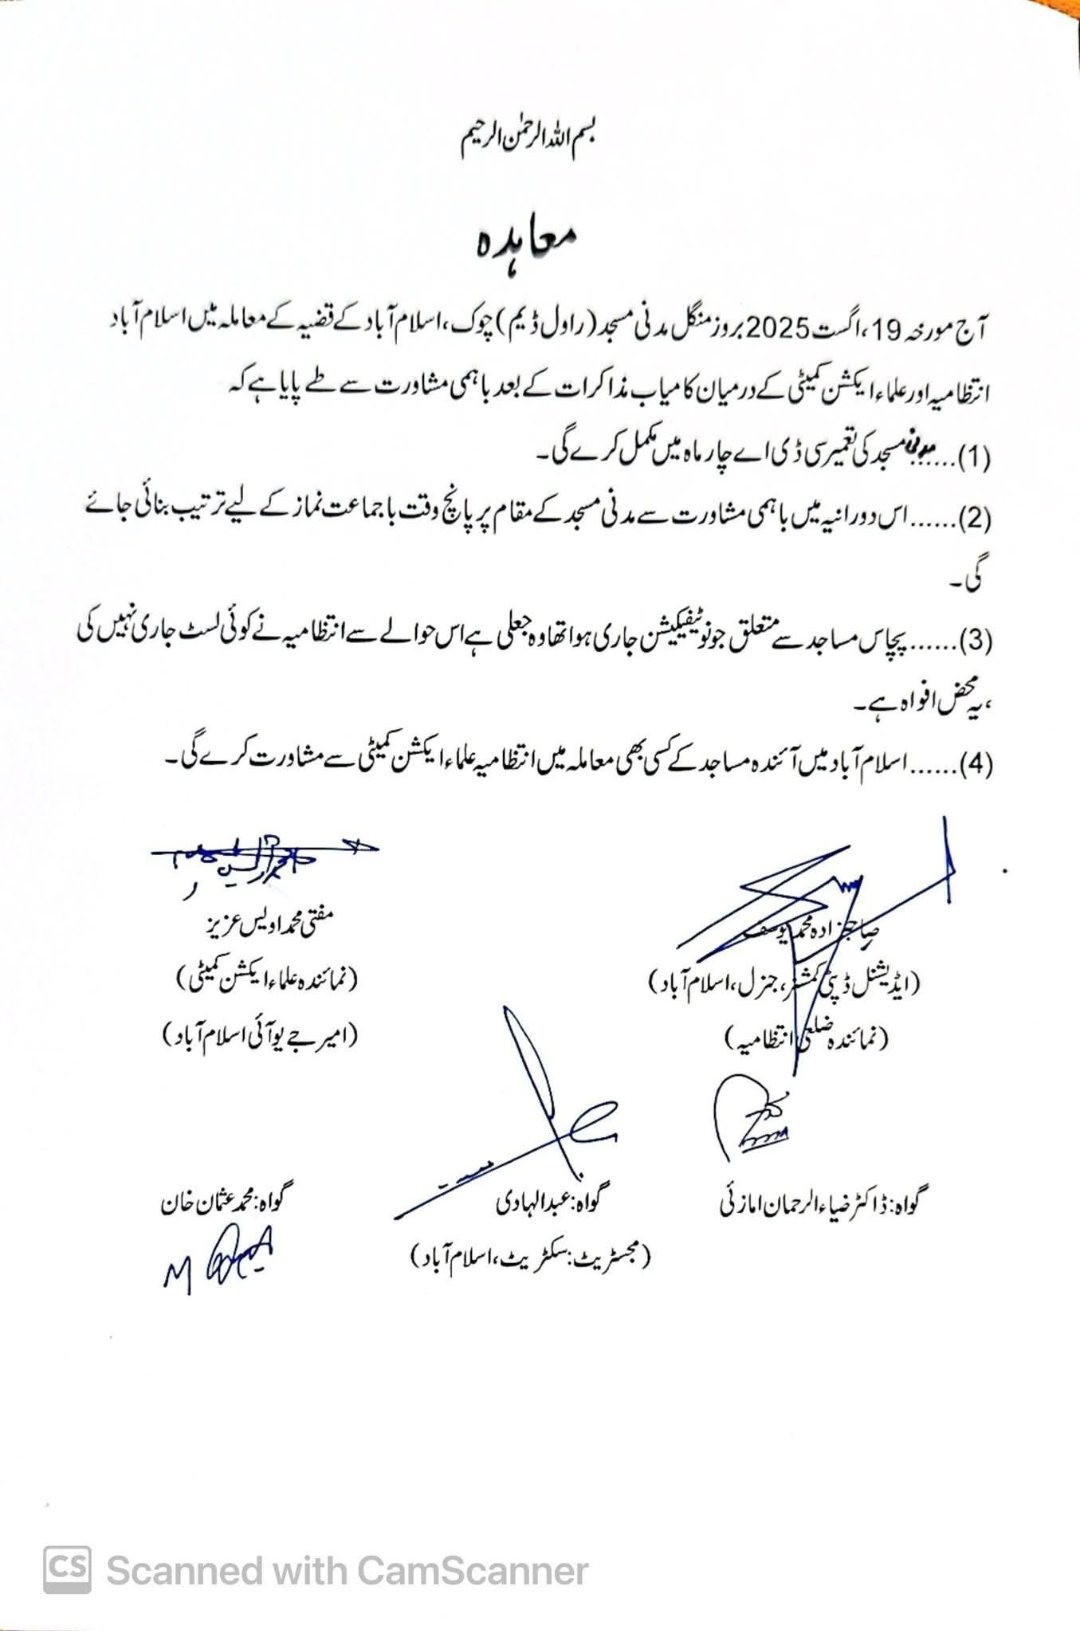 بسم اللہ الرحمٰن الرحیم
معاہدہ
آج مورخہ 19، اگست 2025 بروز منگل مدنی مسجد (راول ڈیم) چوک، اسلام آباد کے قضیہ کے معاملہ میں اسلام آباد
انتظامیہ اور علماء ایکشن کمیٹی کے درمیان کامیاب مذاکرات کے بعد باہمی مشاورت سے طے پایا ہے کہ
(1)...... مدنی مسجد کی تعمیر سی ڈی اے چار ماہ میں مکمل کرے گی۔
(2)...... اس دورانیہ میں باہمی مشاورت سے مدنی مسجد کے مقام پر پانچ وقت با جماعت نماز کے لیے ترتیب بنائی جائے
گی۔
(3)...... پچاس مساجد سے متعلق جو نوٹیفیکیشن جاری ہوا تھا وہ جعلی ہے اس حوالے سے انتظامیہ نے کوئی لسٹ جاری نہیں کی
، یہ محض افواہ ہے۔
(4)...... اسلام آباد میں آئندہ مساجد کے کسی بھی معاملہ میں انتظامیہ علماء ایکشن کمیٹی سے مشاورت کرے گی۔
صاحبزادہ محمد یوسف
(ایڈیشنل ڈپٹی کمشنر، جنرل، اسلام آباد)
(نمائندہ ضلعی انتظامیہ)
مفتی محمد اویس عزیز
(نمائندہ علماء ایکشن کمیٹی)
(امیر جے یو آئی اسلام آباد)
گواہ: ڈاکٹر ضیاء الرحمان امازئی
گواہ: عبدالہادی
(مجسٹریٹ: سکٹریٹ، اسلام آباد)
گواہ: محمد عثمان خان
CS Scanned with CamScanner